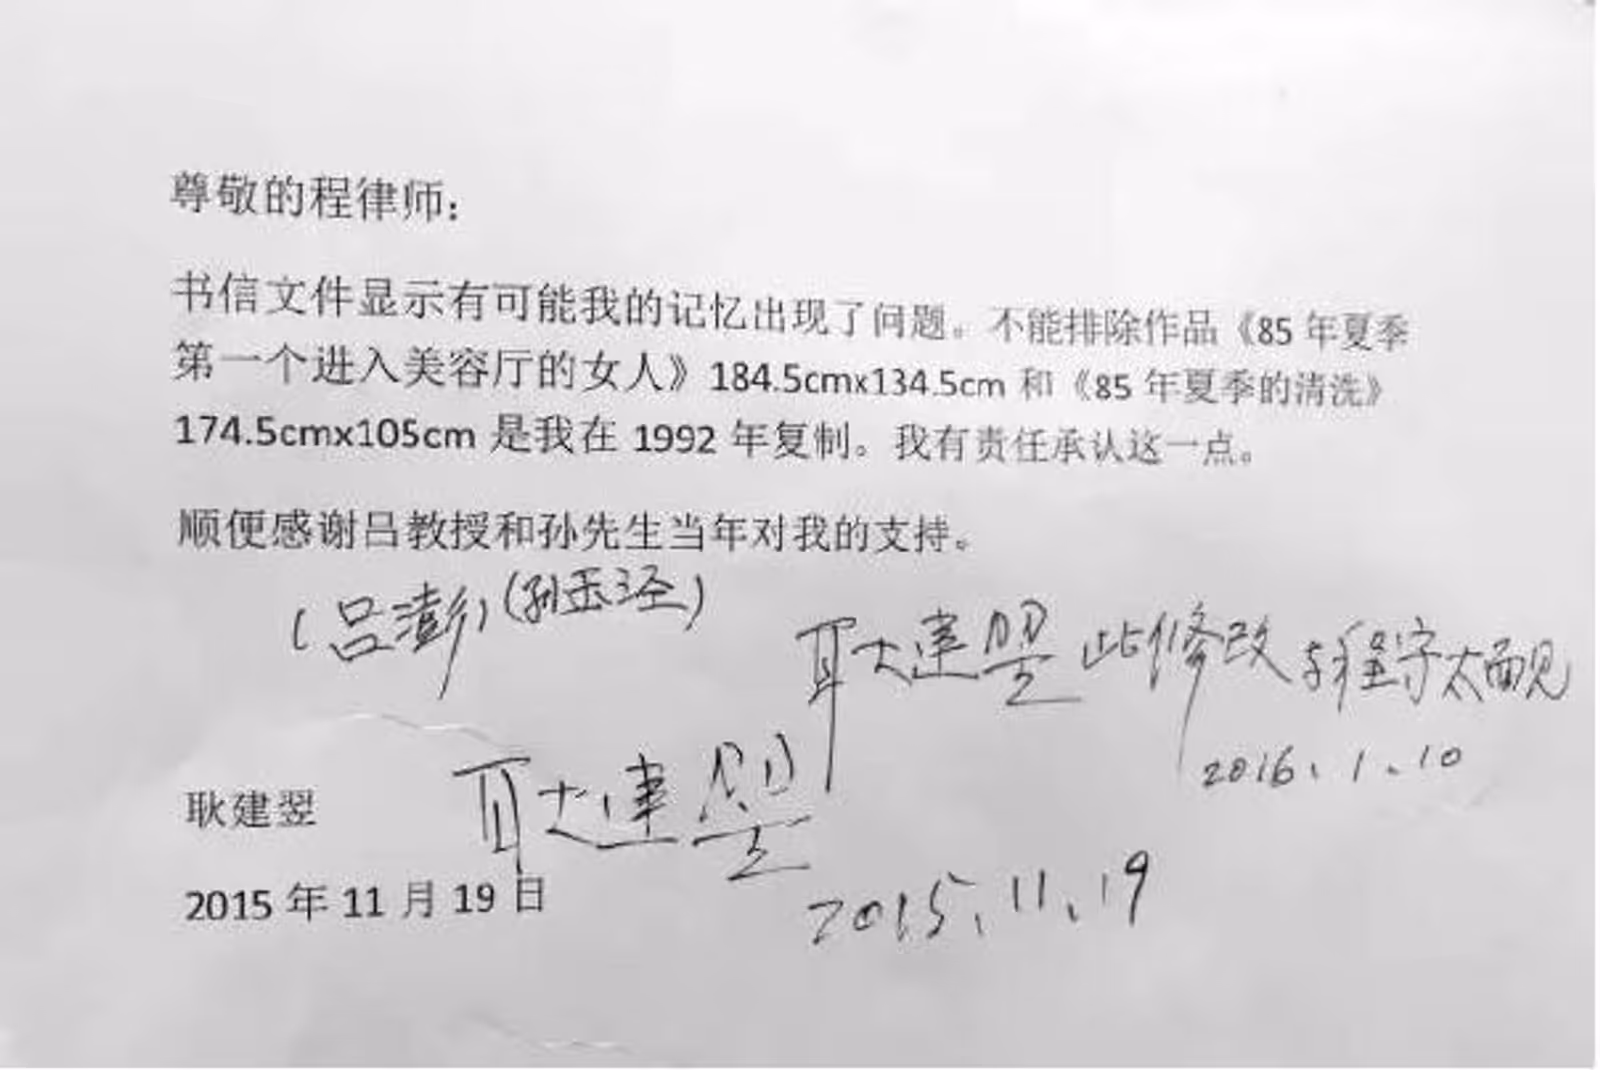 尊敬的程律师：
书信文件显示有可能我的记忆出现了问题。不能排除作品《85 年夏季
第一个进入美容厅的女人》184.5cmx134.5cm 和《85 年夏季的清洗》
174.5cmx105cm 是我在 1992 年复制。我有责任承认这一点。
顺便感谢吕教授和孙先生当年对我的支持。
（吕澎）（孙玉泾）
耿建翌 此修改与程守太面见
2016.1.10
耿建翌 耿建翌
2015 年 11 月 19 日
2015.11.19